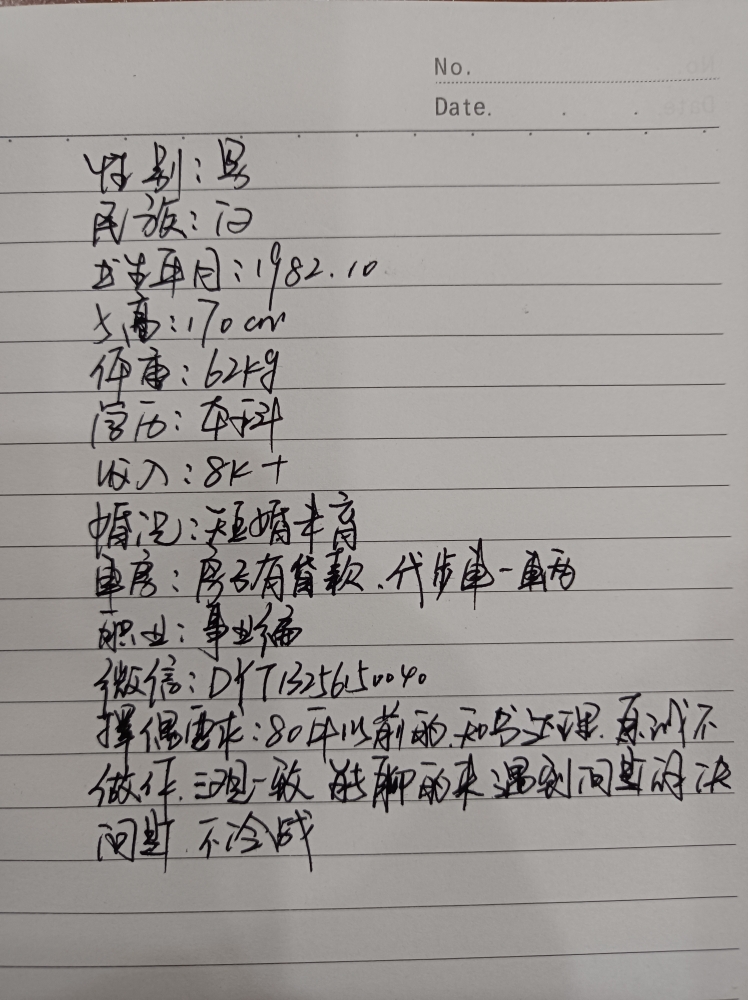 No.
Date.
性别：男
民族：汉
出生年月：1982.10
身高：170cm
体重：62kg
学历：本科
收入：8K+
婚况：短婚未育
车房：房子有贷款、代步车一辆
职业：事业编
微信：DYT13256150040
择偶需求：80年以前的、知书达理、真诚不
做作、三观一致 能聊的来 遇到问题解决
问题、不冷战